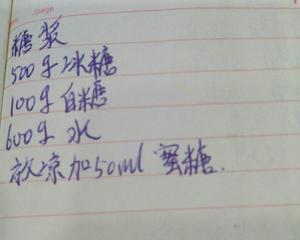 /page
糖浆
500g 冰糖
100g 白糖
600g 水
放凉加50ml 蜜糖.